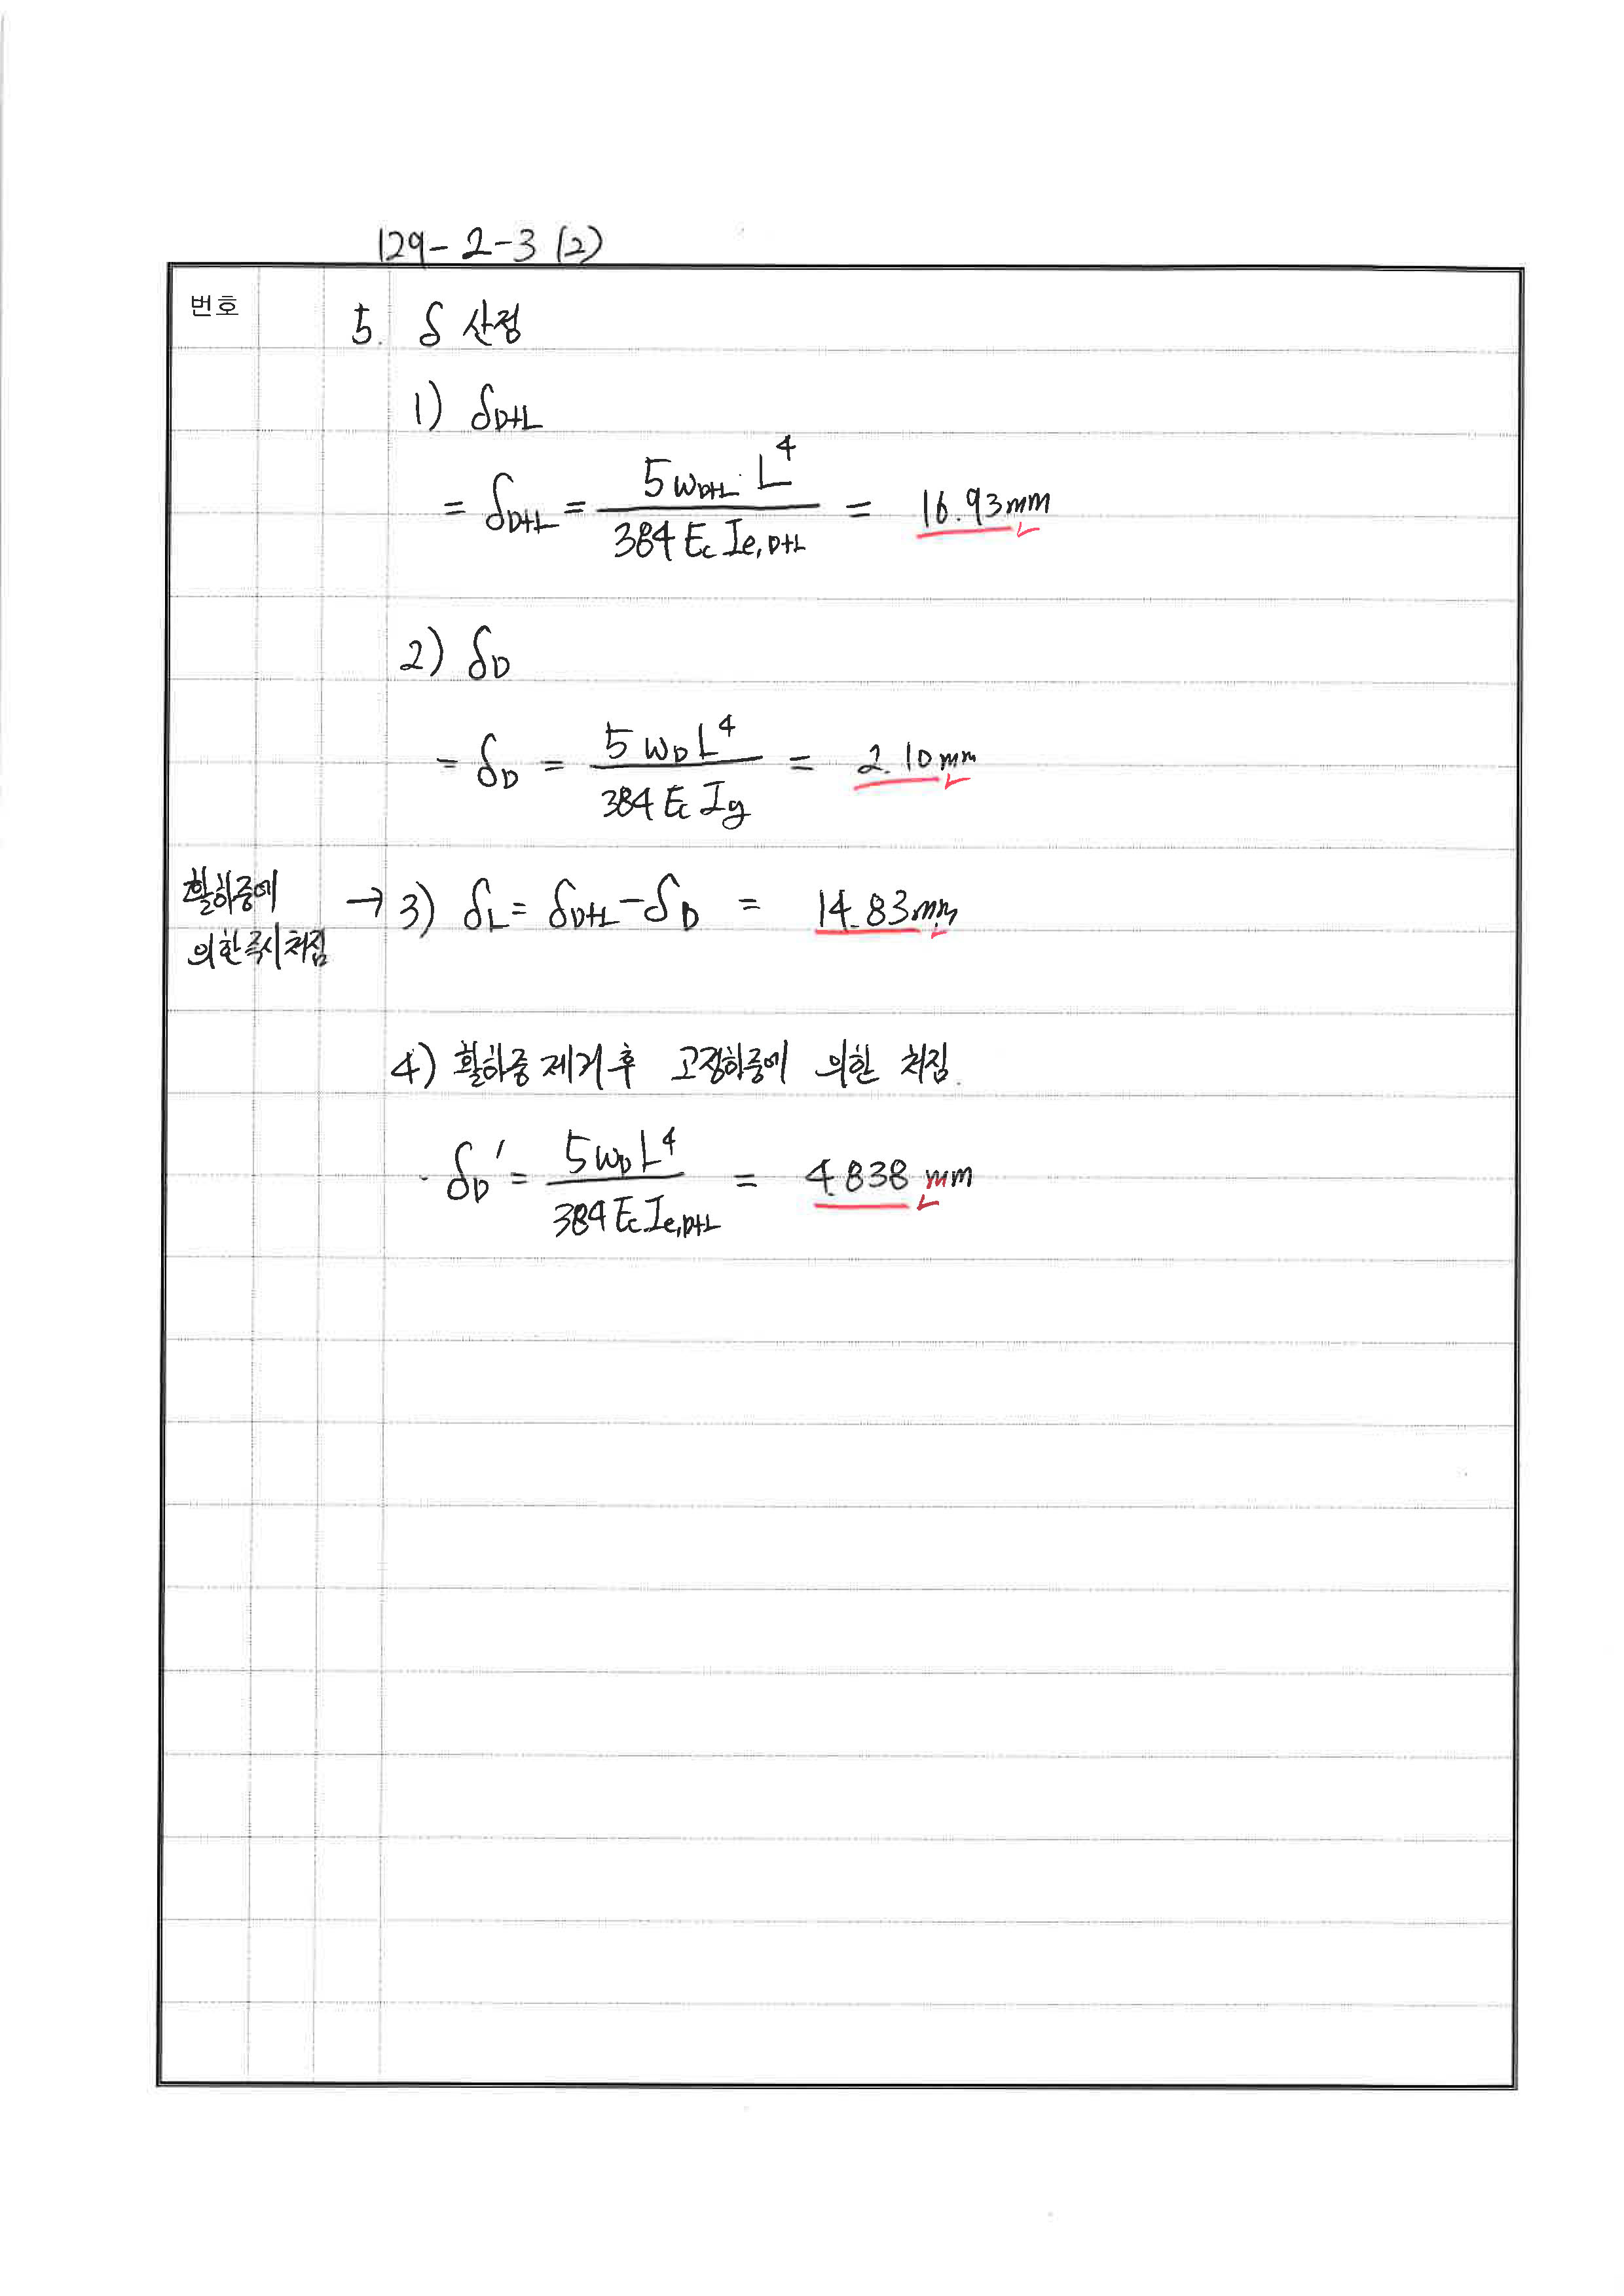 129-2-3 (2)
번호
5. δ 산정
1) δD+L
= δD+L = 5wD+L·L⁴ / 384 Ec Ie,D+L = 16.93mm
2) δD
= δD = 5wDL⁴ / 384 Ec Ig = 2.10mm
활하중에
의한 즉시처짐
→ 3) δL = δD+L - δD = 14.83mm
4) 활하중 제거 후 고정하중에 의한 처짐.
· δD' = 5wDL⁴ / 384 Ec Ie,D+L = 4.838 mm